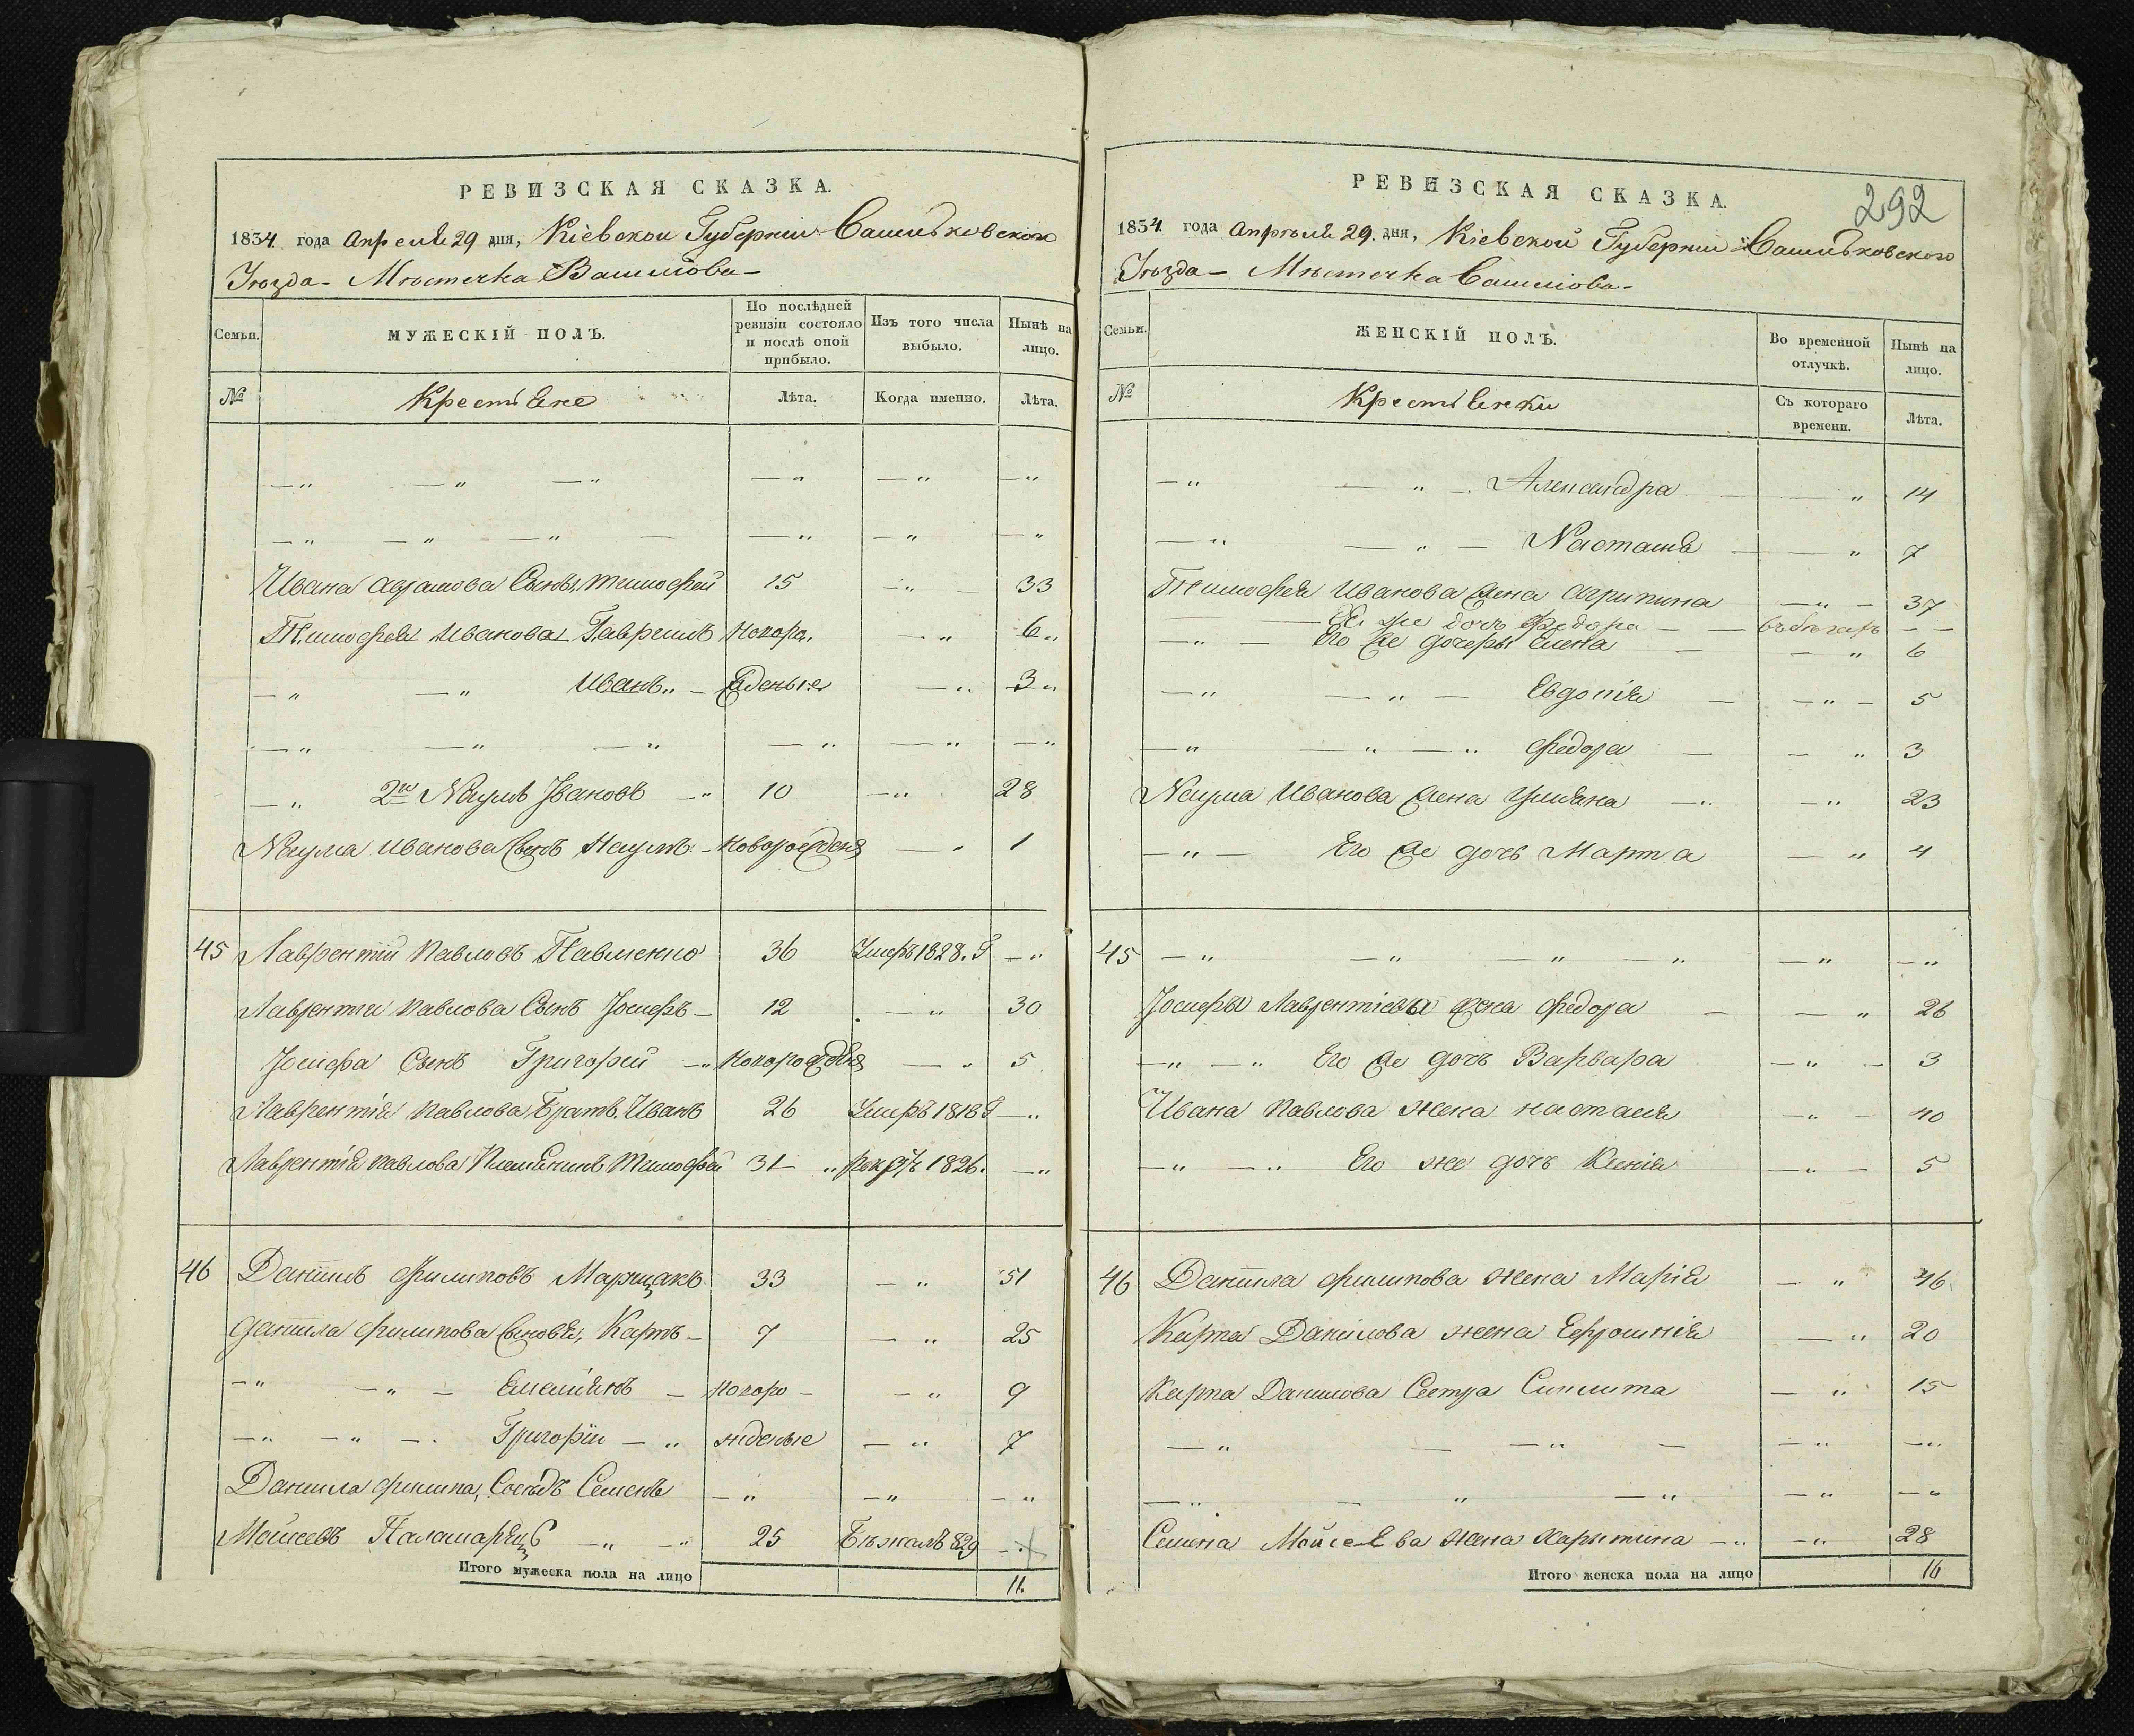 РЕВИЗСКАЯ СКАЗКА.
1834 года Апреля 29 дня, Кіевской Губерніи Сквирского
Уѣзда - Мѣстечка
Семьи.
МУЖЕСКІЙ ПОЛЪ.
По послѣдней ревизіи состояло и послѣ оной прибыло.
Изъ того числа выбыло.
Нынѣ на лицо.
№
Крестьяне
Лѣта.
Когда именно.
Лѣта.
— „ — „ — „ — „ — „ — „
— „ — „ — „ — — „ — „ — „
Ивана Адамова Сынъ, Тимофей 15 — „ — 33
Тимофея Иванова Гаврилъ Новоро. — „ 6 „
— „ — „ Иванъ „ — жденые — „ 3 „
— „ — „ — „ — „ — „ — „
— „ 2й Наумъ Івановъ — „ 10 — „ 28
Наума Иванова Сынъ Наумъ - Новорожденъ — „ 1
45 Лаврентій Павловъ Павленко 36 Умеръ 1828. Г — „
Лаврентія Павлова Сынъ Іосифъ - 12 — „ 30
Іосифа Сынъ Григорей — „ — „ 5
Лаврентія Павлова Братъ Иванъ 26 Умеръ 1818 Г — „
Лаврентія Павлова Племянникъ Тимофей 31 — „ Рекрутъ 1826. — „
46 Данилъ Филиповъ Марцакъ 33 — „ 51
Данила Филипова Сыновья, Карпъ - 7 — „ 25
— „ — „ — Емельянъ — Новоро - — „ 9
— „ — „ — . Григорій — „ жденые — „ 7
Данила Филипа, Сосѣдъ Семенъ — „ — „ — „
Мойсеевъ — „ — „ 25 Бѣжалъ 829 — .
Итого мужеска пола на лицо 11.
РЕВИЗСКАЯ СКАЗКА.
292
1834 года Апрѣля 29. дня, Кіевской Губерніи
Уѣзда - Мѣстечка
Семьи.
ЖЕНСКІЙ ПОЛЪ.
Во временной отлучкѣ.
Нынѣ на лицо.
№
Крестьянки
Съ котораго времени.
Лѣта.
— „ — „ — Александра — — „ 14
— „ — „ — Настасья — — „ 7
Тимофея Иванова жена Агрипина — „ — 37
Ея же дочь Федора — — въ бѣгахъ — —
— „ — Его же дочеры Елена — — „ 6
— „ — „ — Евдокія — — „ — 5
— „ — „ — „ Федора — — „ 3
Наума Иванова жена Уліяна — „ — „ 23
— „ — Его же дочь Марта — „ 4
45 — „ — „ — „ — „ — „ — „
Іосифа Лаврентіева жена Федора — — „ 26
— „ — „ Его же дочь Варвара — „ — 3
Ивана Павлова жена Настасья — „ — 40
— „ — „ Его же дочь Ксенія — „ — 5
46 Данила Филипова жена Марія — „ 46
Карпа Данилова жена Ефросинія — „ 20
Карпа Данилова Сестра Синклита — „ 15
— „ — — „ — — „ — „
— „ — „ — „ — „ — „
Семена Мойсеева жена Харитина — „ — „ 28
Итого женска пола на лицо 16